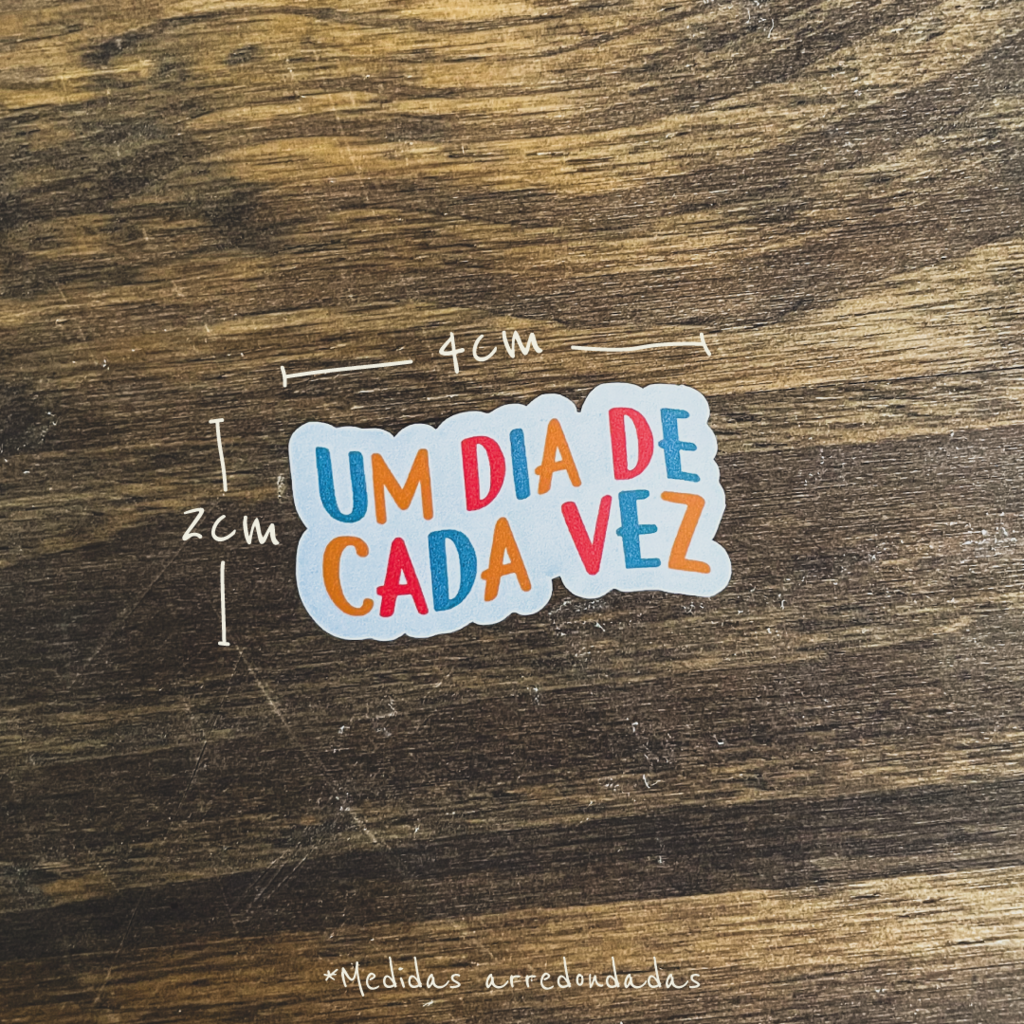 4cm
2cm
UM DIA DE
CADA VEZ
*Medidas arredondadas